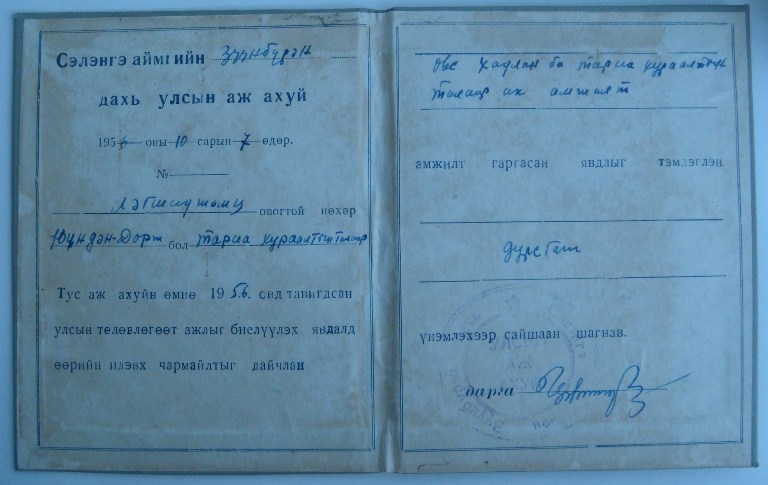 Сэлэнгэ аймгийн Зүүнбүрэн
дахь улсын аж ахуй
1956 оны 10 сарын 7 өдөр.
№
овогтой нөхөр
Юундэн-Дорж бол тариа хураалтын талаар
Тус аж ахуйн өмнө 1956. онд тавигдсан
улсын төлөвлөгөөт ажлыг биелүүлэх явдалд
өөрийн идэвх чармайлтыг дайчлан
өвс хадлан ба тариа хураалтын
талаар их амжилт
амжилт гаргасан явдлыг тэмдэглэн
үнэмлэхээр сайшаан шагнав.
дарга